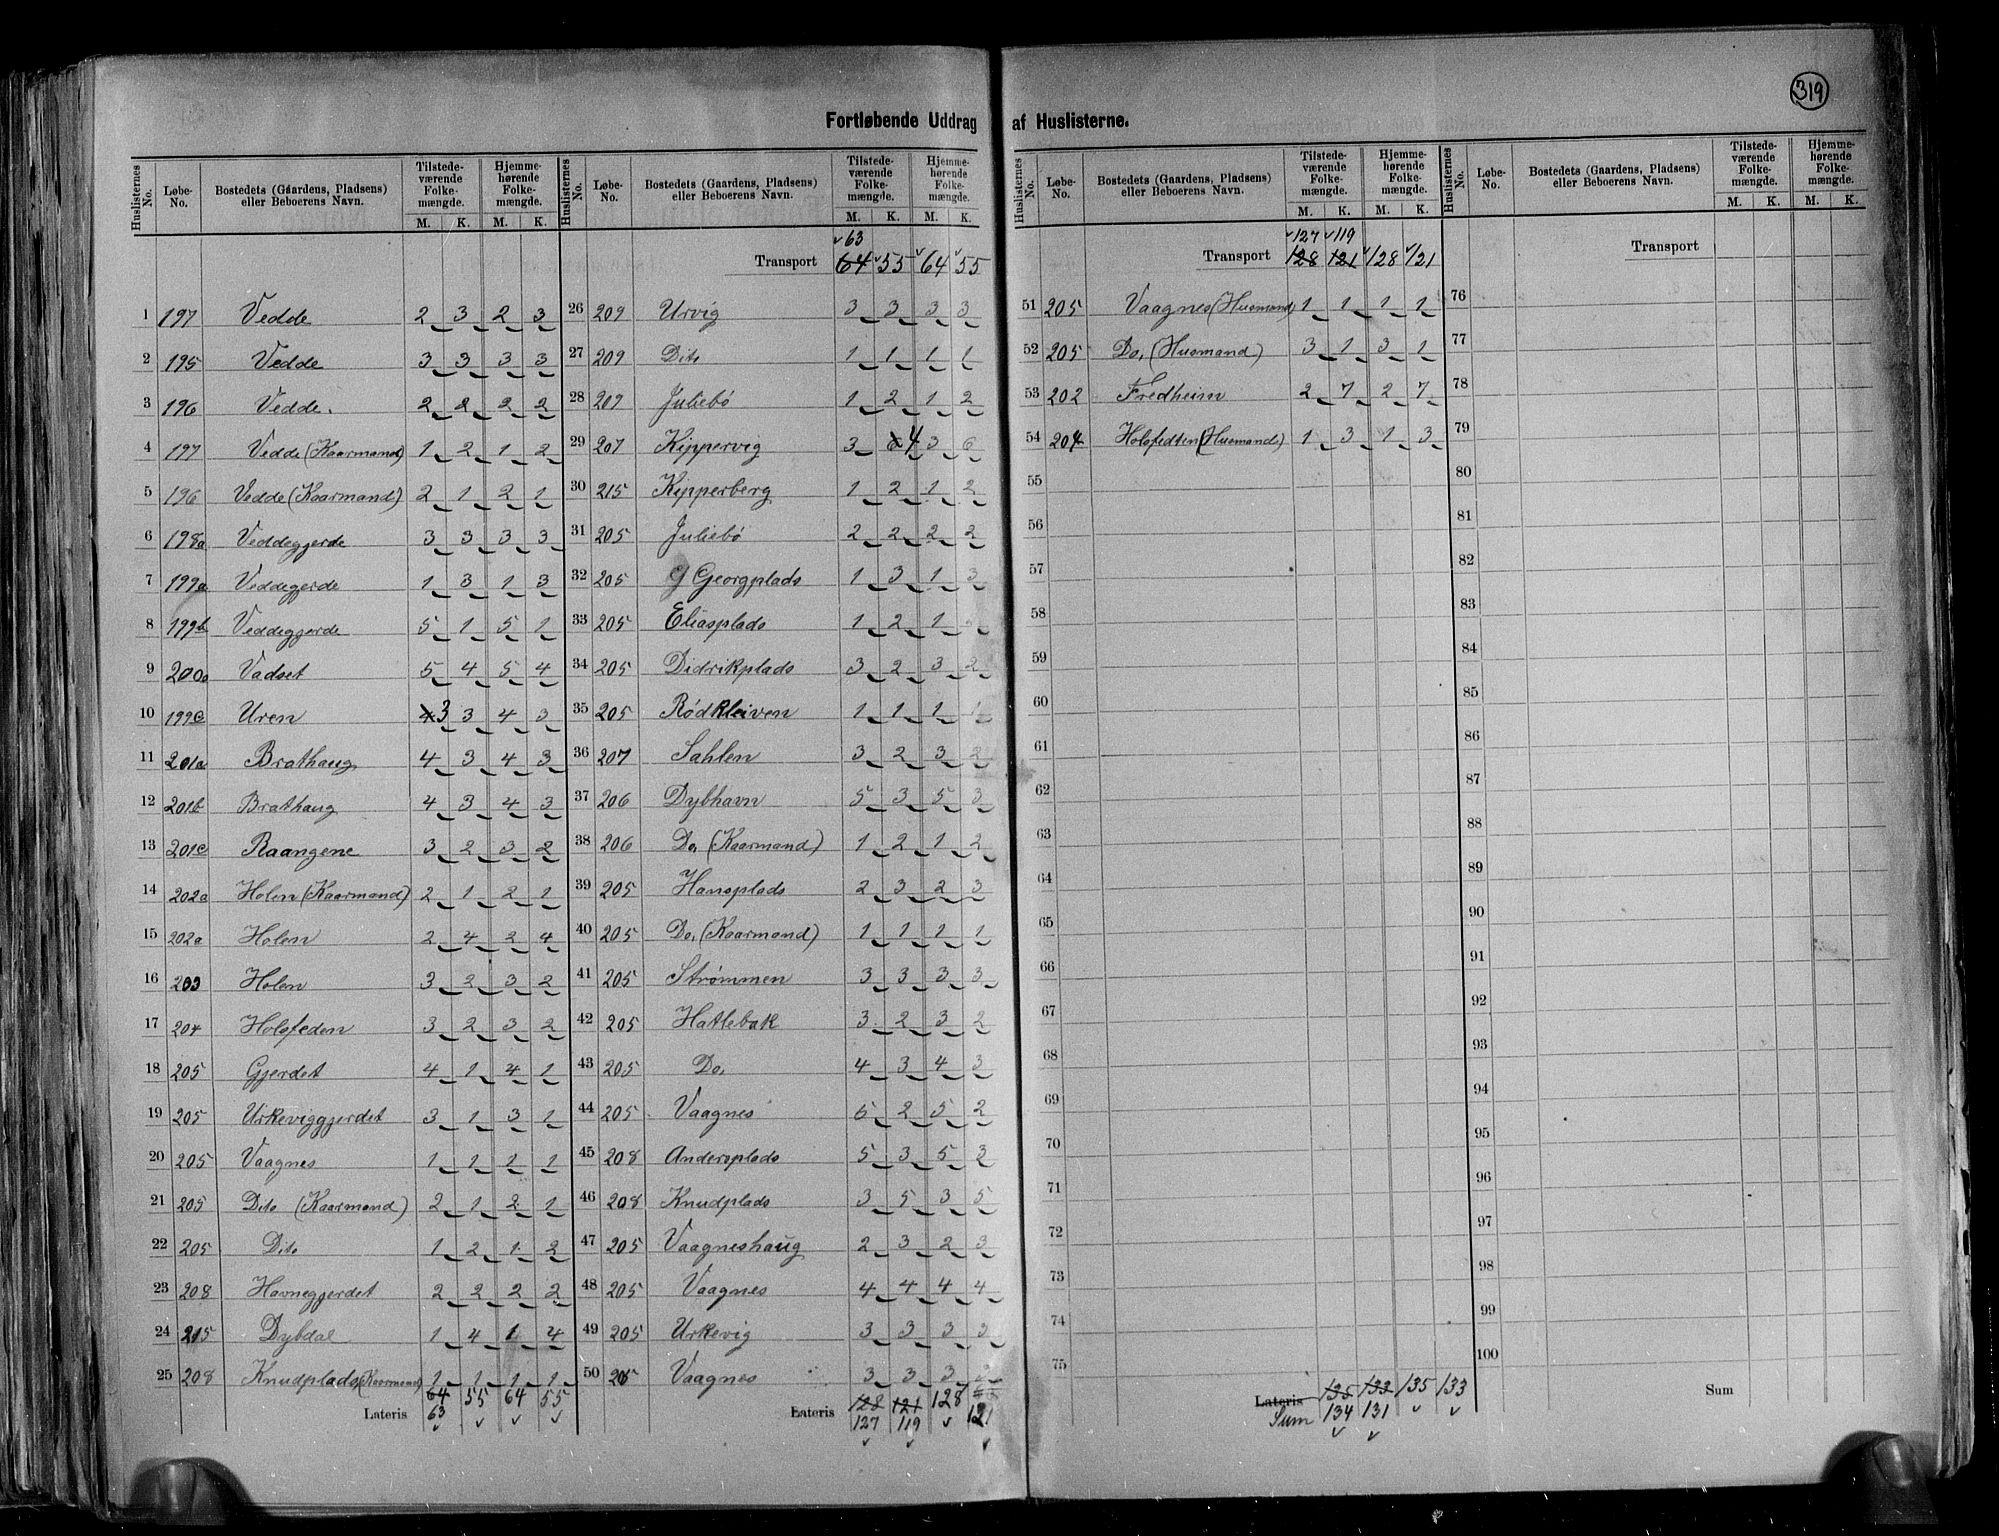 319
Fortløbende Uddrag af Huslisterne.
Huslisternes No. Løbe-No. Bostedets (Gaardens, Pladsens) eller Beboerens Navn. Tilstedeværende Folkemængde. M. K. Hjemmehørende Folkemængde. M. K.
1 197 Vedde 2 3 2 3
2 195 Vedde 3 3 3 3
3 196 Vedde. 2 2 2 2
4 197 Vedde (Kaarmand) 1 2 1 2
5 196 Vedde (Kaarmand) 2 1 2 1
6 198a Veddegjerde 3 3 3 3
7 199a Veddegjerde 1 3 1 3
8 199b Veddegjerde 5 1 5 1
9 200a Vadset 5 4 5 4
10 199c Uren 4 3 3 4 3
11 201a Brathaug 4 3 4 3
12 201b Brathaug 4 3 4 3
13 201c Raangene 3 2 3 2
14 202a Holen (Kaarmand) 2 1 2 1
15 202a Holen 2 4 2 4
16 203 Holen 3 2 3 2
17 204 Holsfeden 3 2 3 2
18 205 Gjerdet 4 1 4 1
19 205 Urkeviggjerdet 3 1 3 1
20 205 Vaagnes 1 1 1 1
21 205 Dito (Kaarmand) 2 1 2 1
22 205 Dito 1 2 1 2
23 208 Havnegjerdet 2 2 2 2
24 215 Dybdal 1 4 1 4
25 208 Knudplads (Kaarmand) 1 1 1 1
Lateris 64 55 64 55
63
Huslisternes No. Løbe-No. Bostedets (Gaardens, Pladsens) eller Beboerens Navn. Tilstedeværende Folkemængde. M. K. Hjemmehørende Folkemængde. M. K.
63
Transport 64 55 64 55
26 209 Urvig 3 3 3 3
27 209 Dito 1 1 1 1
28 209 Juliebø 1 2 1 2
29 207 Kippervig 3 6 4 3 6
30 215 Kipperberg 1 2 1 2
31 205 Juliebø 2 2 2 2
32 205 Georgplads 1 3 1 3
33 205 Eliasplads 1 2 1
34 205 Didrikplads 3 2 3 2
35 205 Rødkleiven 1 1 1 1
36 207 Sahlen 3 2 3 2
37 206 Dybhavn 5 3 5 3
38 206 Do, (Kaarmand) 1 2 1 2
39 205 Hansplads 2 3 2 3
40 205 Do, (Kaarmand) 1 1 1 1
41 205 Strømmen 3 3 3 3
42 205 Hatlebak 3 2 3 2
43 205 Do, 4 3 4 3
44 205 Vaagnes 5 2 5 2
45 208 Andersplads 5 3 5 3
46 208 Knudplads 3 5 3 5
47 205 Vaagneshaug 2 3 2 3
48 205 Vaagnes 4 4 4 4
49 205 Urkevig 3 3 3 3
50 205 Vaagnes 3 3 3
Lateris 128 121 128
127 119 121
Huslisternes No. Løbe-No. Bostedets (Gaardens, Pladsens) eller Beboerens Navn. Tilstedeværende Folkemængde. M. K. Hjemmehørende Folkemængde. M. K.
127 119
Transport 128 121 128 121
51 205 Vaagnes (Husmand) 1 1 1 1
52 205 Do, (Husmand) 3 1 3 1
53 202 Fredheim 2 7 2 7
54 204 Holsfedten (Husmands) 1 3 1 3
55
56
57
58
59
60
61
62
63
64
65
66
67
68
69
70
71
72
73
74
75
Lateris 135 133 135 133
Sum 134 131
Huslisternes No. Løbe-No. Bostedets (Gaardens, Pladsens) eller Beboerens Navn. Tilstedeværende Folkemængde. M. K. Hjemmehørende Folkemængde. M. K.
Transport
76
77
78
79
80
81
82
83
84
85
86
87
88
89
90
91
92
93
94
95
96
97
98
99
100
Sum